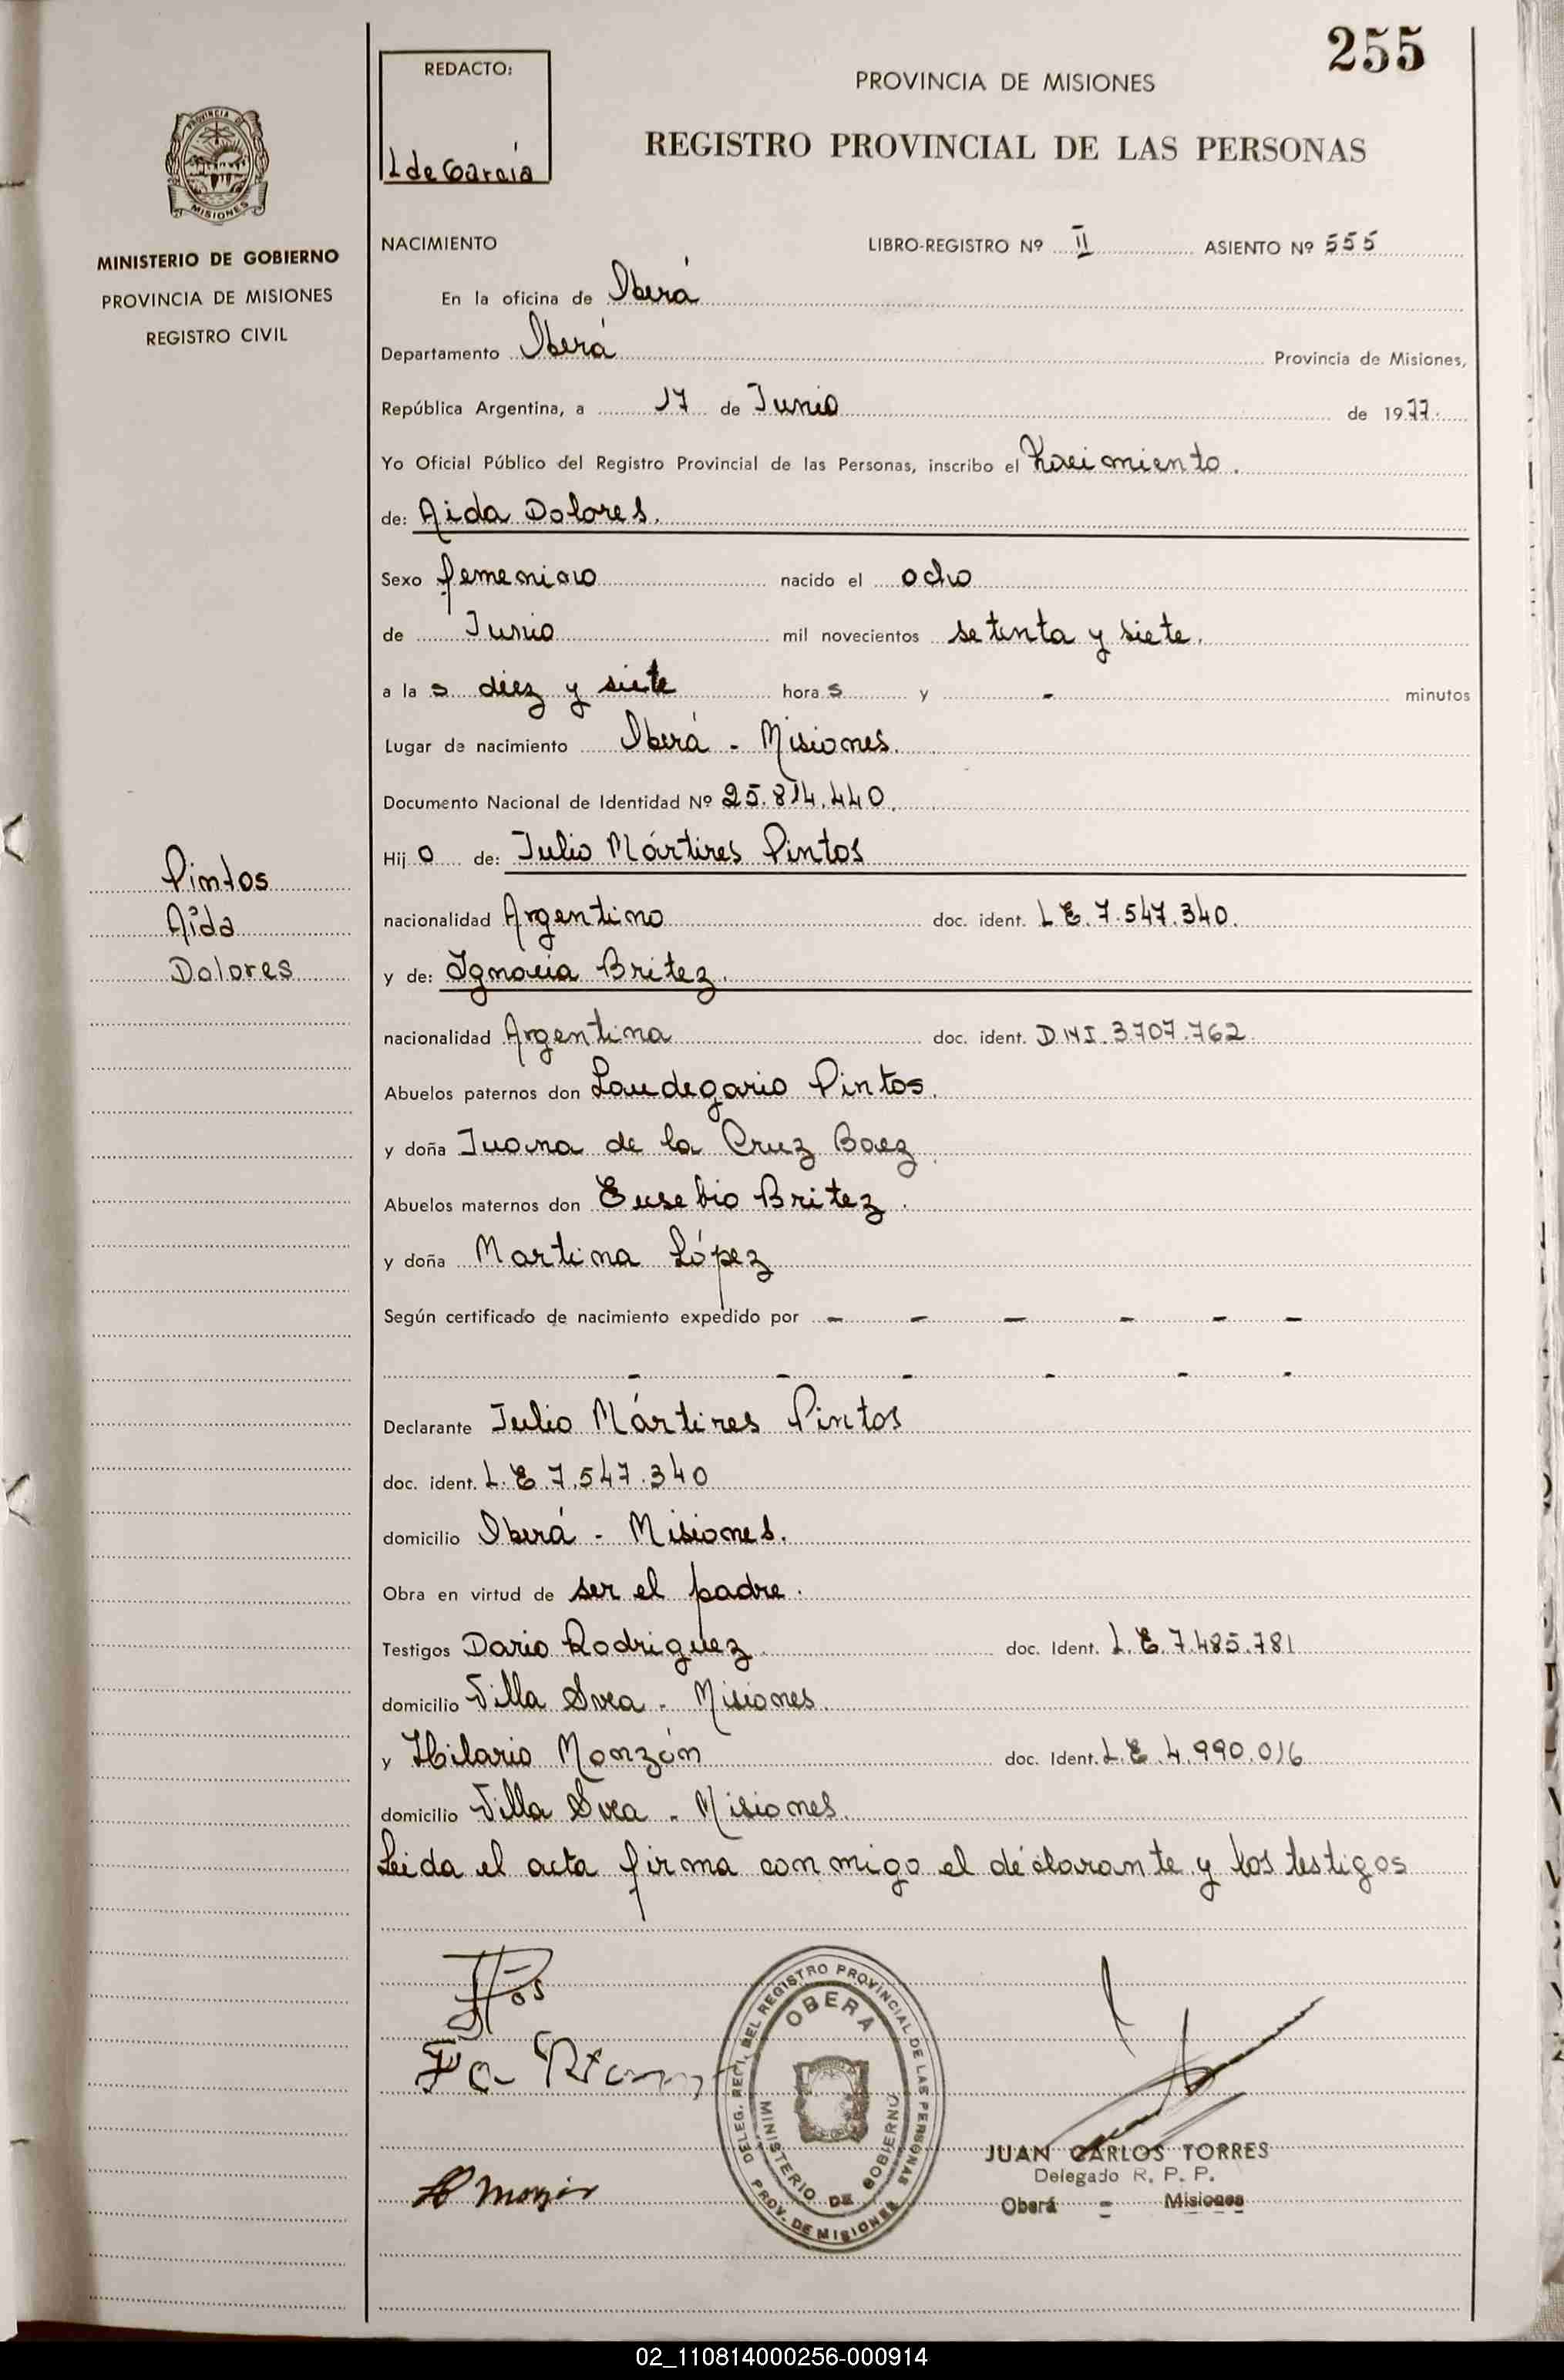 255
REDACTO:
L de García
PROVINCIA DE MISIONES
REGISTRO PROVINCIAL DE LAS PERSONAS
PROVINCIA DE
MISIONES
MINISTERIO DE GOBIERNO
PROVINCIA DE MISIONES
REGISTRO CIVIL
NACIMIENTO LIBRO-REGISTRO Nº II ASIENTO Nº 555
En la oficina de Oberá
Departamento Oberá Provincia de Misiones,
República Argentina, a 17 de Junio de 1977.
Yo Oficial Público del Registro Provincial de las Personas, inscribo el Nacimiento.
de: Aida Dolores.
Sexo femenino nacido el ocho
de Junio mil novecientos setenta y siete.
a la s diez y siete hora s y - minutos
Lugar de nacimiento Oberá - Misiones.
Documento Nacional de Identidad Nº 25.814.440.
Hij o de: Julio Mártires Pintos
Pintos
Aída
Dolores
nacionalidad Argentino doc. ident. L E. 7.547.340.
y de: Ignacia Britez.
nacionalidad Argentina doc. ident. D.N.I. 3.707.762.
Abuelos paternos don Laudegario Pintos.
y doña Juana de la Cruz Baez.
Abuelos maternos don Eusebio Britez.
y doña Martina López
Según certificado de nacimiento expedido por - - - - - -
- - - - - -
Declarante Julio Mártires Pintos
doc. ident. L. E. 7.547.340
domicilio Oberá - Misiones.
Obra en virtud de ser el padre.
Testigos Dario Rodriguez. doc. Ident. L. E. 7.485.781
domicilio Villa Svea - Misiones.
y Hilario Monzón doc. Ident. L. E. 4.990.016
domicilio Villa Svea - Misiones.
Leida el acta firma conmigo el déclarante y los testigos
DELEG. REG. DEL REGISTRO PROVINCIAL DE LAS PERSONAS
OBERA
MINISTERIO DE GOBIERNO
PROV. DE MISIONES
JUAN CARLOS TORRES
Delegado R. P. P.
Oberá - Misiones
02_110814000256-000914